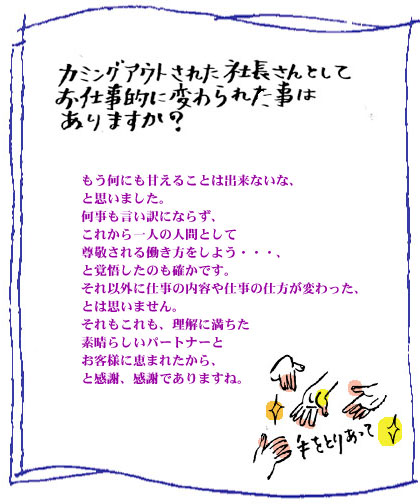 カミングアウトされた社長さんとして
お仕事的に変わられた事は
ありますか?
もう何にも甘えることは出来ないな、
と思いました。
何事も言い訳にならず、
これから一人の人間として
尊敬される働き方をしよう・・・、
と覚悟したのも確かです。
それ以外に仕事の内容や仕事の仕方が変わった、
とは思いません。
それもこれも、理解に満ちた
素晴らしいパートナーと
お客様に恵まれたから、
と感謝、感謝でありますね。
手をとりあって